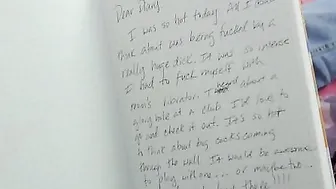 Dear Diary,
I was so hot today. All I could
think about was being fucked by a
really huge dick. It was so intense
I had to fuck myself with
mom's vibrator. I heard about a
glory hole at a club. I'd love to
go and check it out. It's so hot
to think about big cocks coming
through the wall. It would be awesome
to play with one... or maybe two...